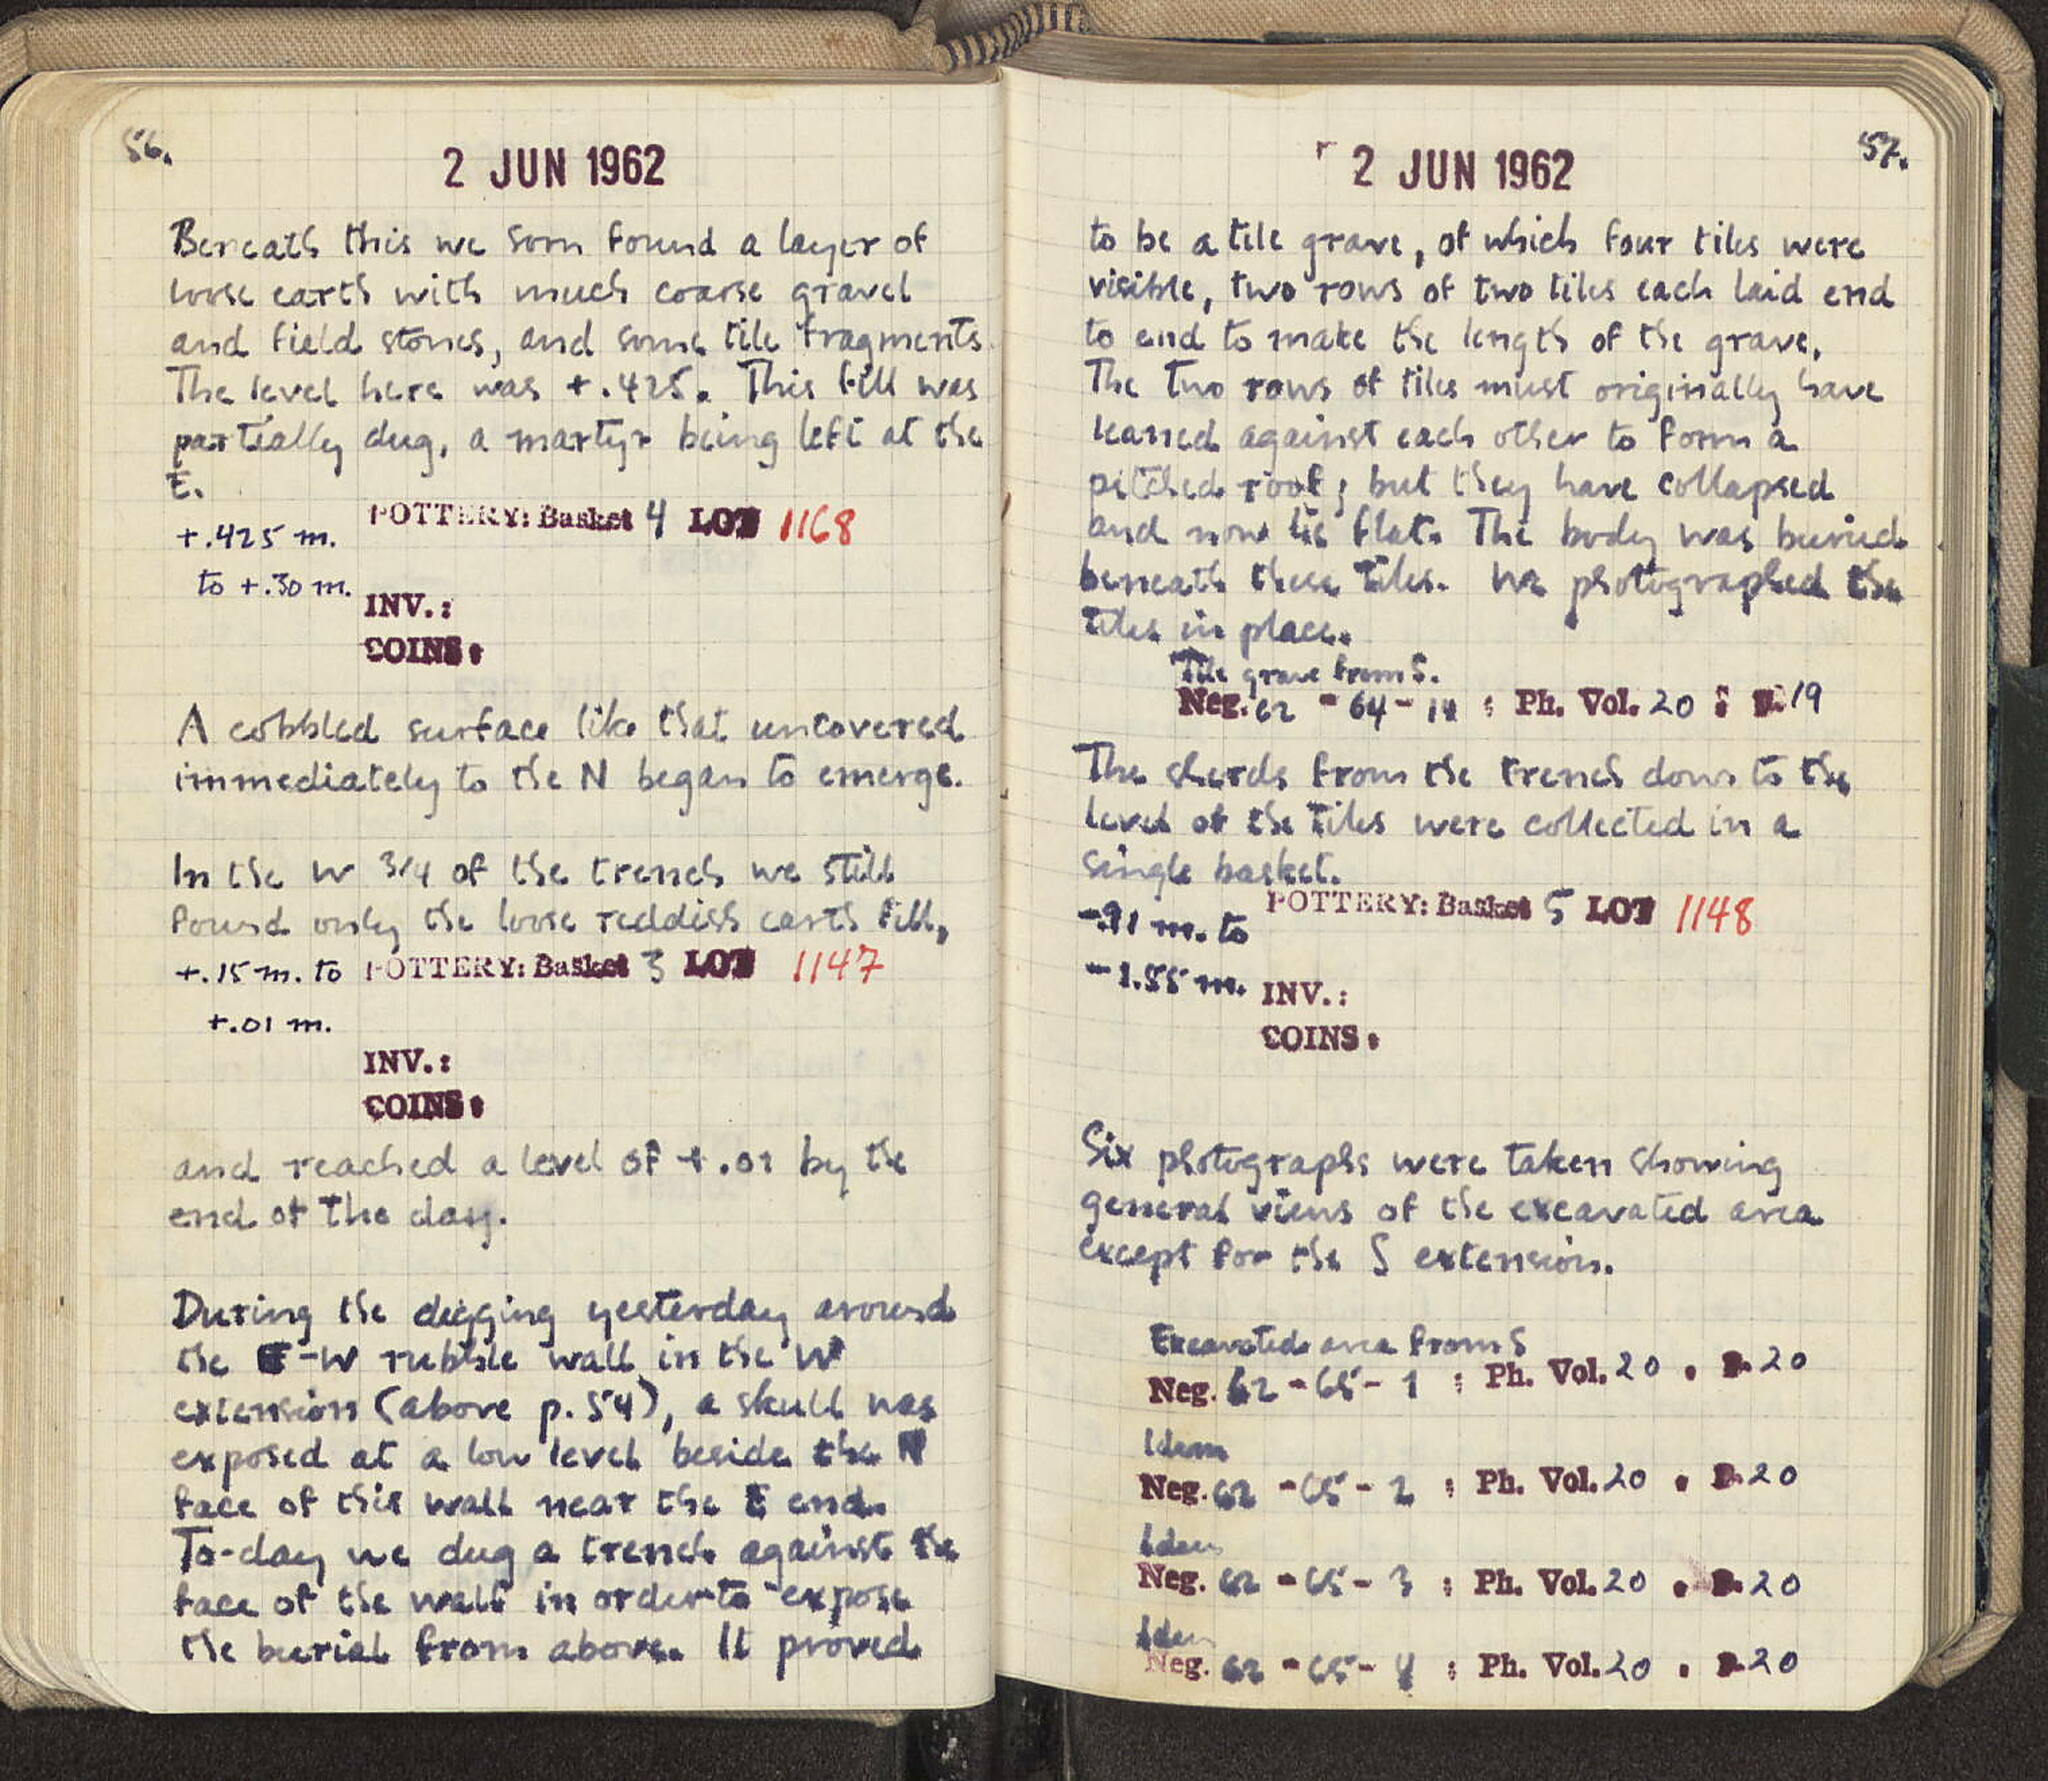 56.
2 JUN 1962
Beneath this we soon found a layer of
loose earth with much coarse gravel
and field stones, and some tile fragments.
The level here was +.425. This fill was
partially dug, a martyr being left at the
E.
+.425 m.
to +.30 m.
POTTERY: Basket 4 LOT 1168
INV.:
COINS:
A cobbled surface like that uncovered
immediately to the N began to emerge.
In the W 3/4 of the trench we still
found only the loose reddish earth fill,
+.15 m. to POTTERY: Basket 3 LOT 1147
+.01 m.
INV.:
COINS:
and reached a level of +.01 by the
end of the day.
During the digging yesterday around
the E-W rubble wall in the W
extension (above p. 54), a skull was
exposed at a low level beside the N
face of this wall near the E end.
To-day we dug a trench against the
face of the wall in order to expose
the burial from above. It proved
57.
2 JUN 1962
to be a tile grave, of which four tiles were
visible, two rows of two tiles each laid end
to end to make the length of the grave.
The two rows of tiles must originally have
leaned against each other to form a
pitched roof; but they have collapsed
and now lie flat. The body was buried
beneath these tiles. We photographed the
tiles in place.
Tile grave from S.
Neg. 62 - 64 - : Ph. Vol. 20 : P. 19
The sherds from the trench down to the
level of the tiles were collected in a
single basket.
-.91 m. to
-1.55 m.
POTTERY: Basket 5 LOT 1148
INV.:
COINS:
Six photographs were taken showing
general views of the excavated area
except for the S extension.
Excavated area from S
Neg. 62 - 65 - 1 : Ph. Vol. 20 . P. 20
Idem
Neg. 62 - 65 - 2 : Ph. Vol. 20 . P. 20
Idem
Neg. 62 - 65 - 3 : Ph. Vol. 20 . P. 20
Idem
Neg. 62 - 65 - 4 : Ph. Vol. 20 . P. 20